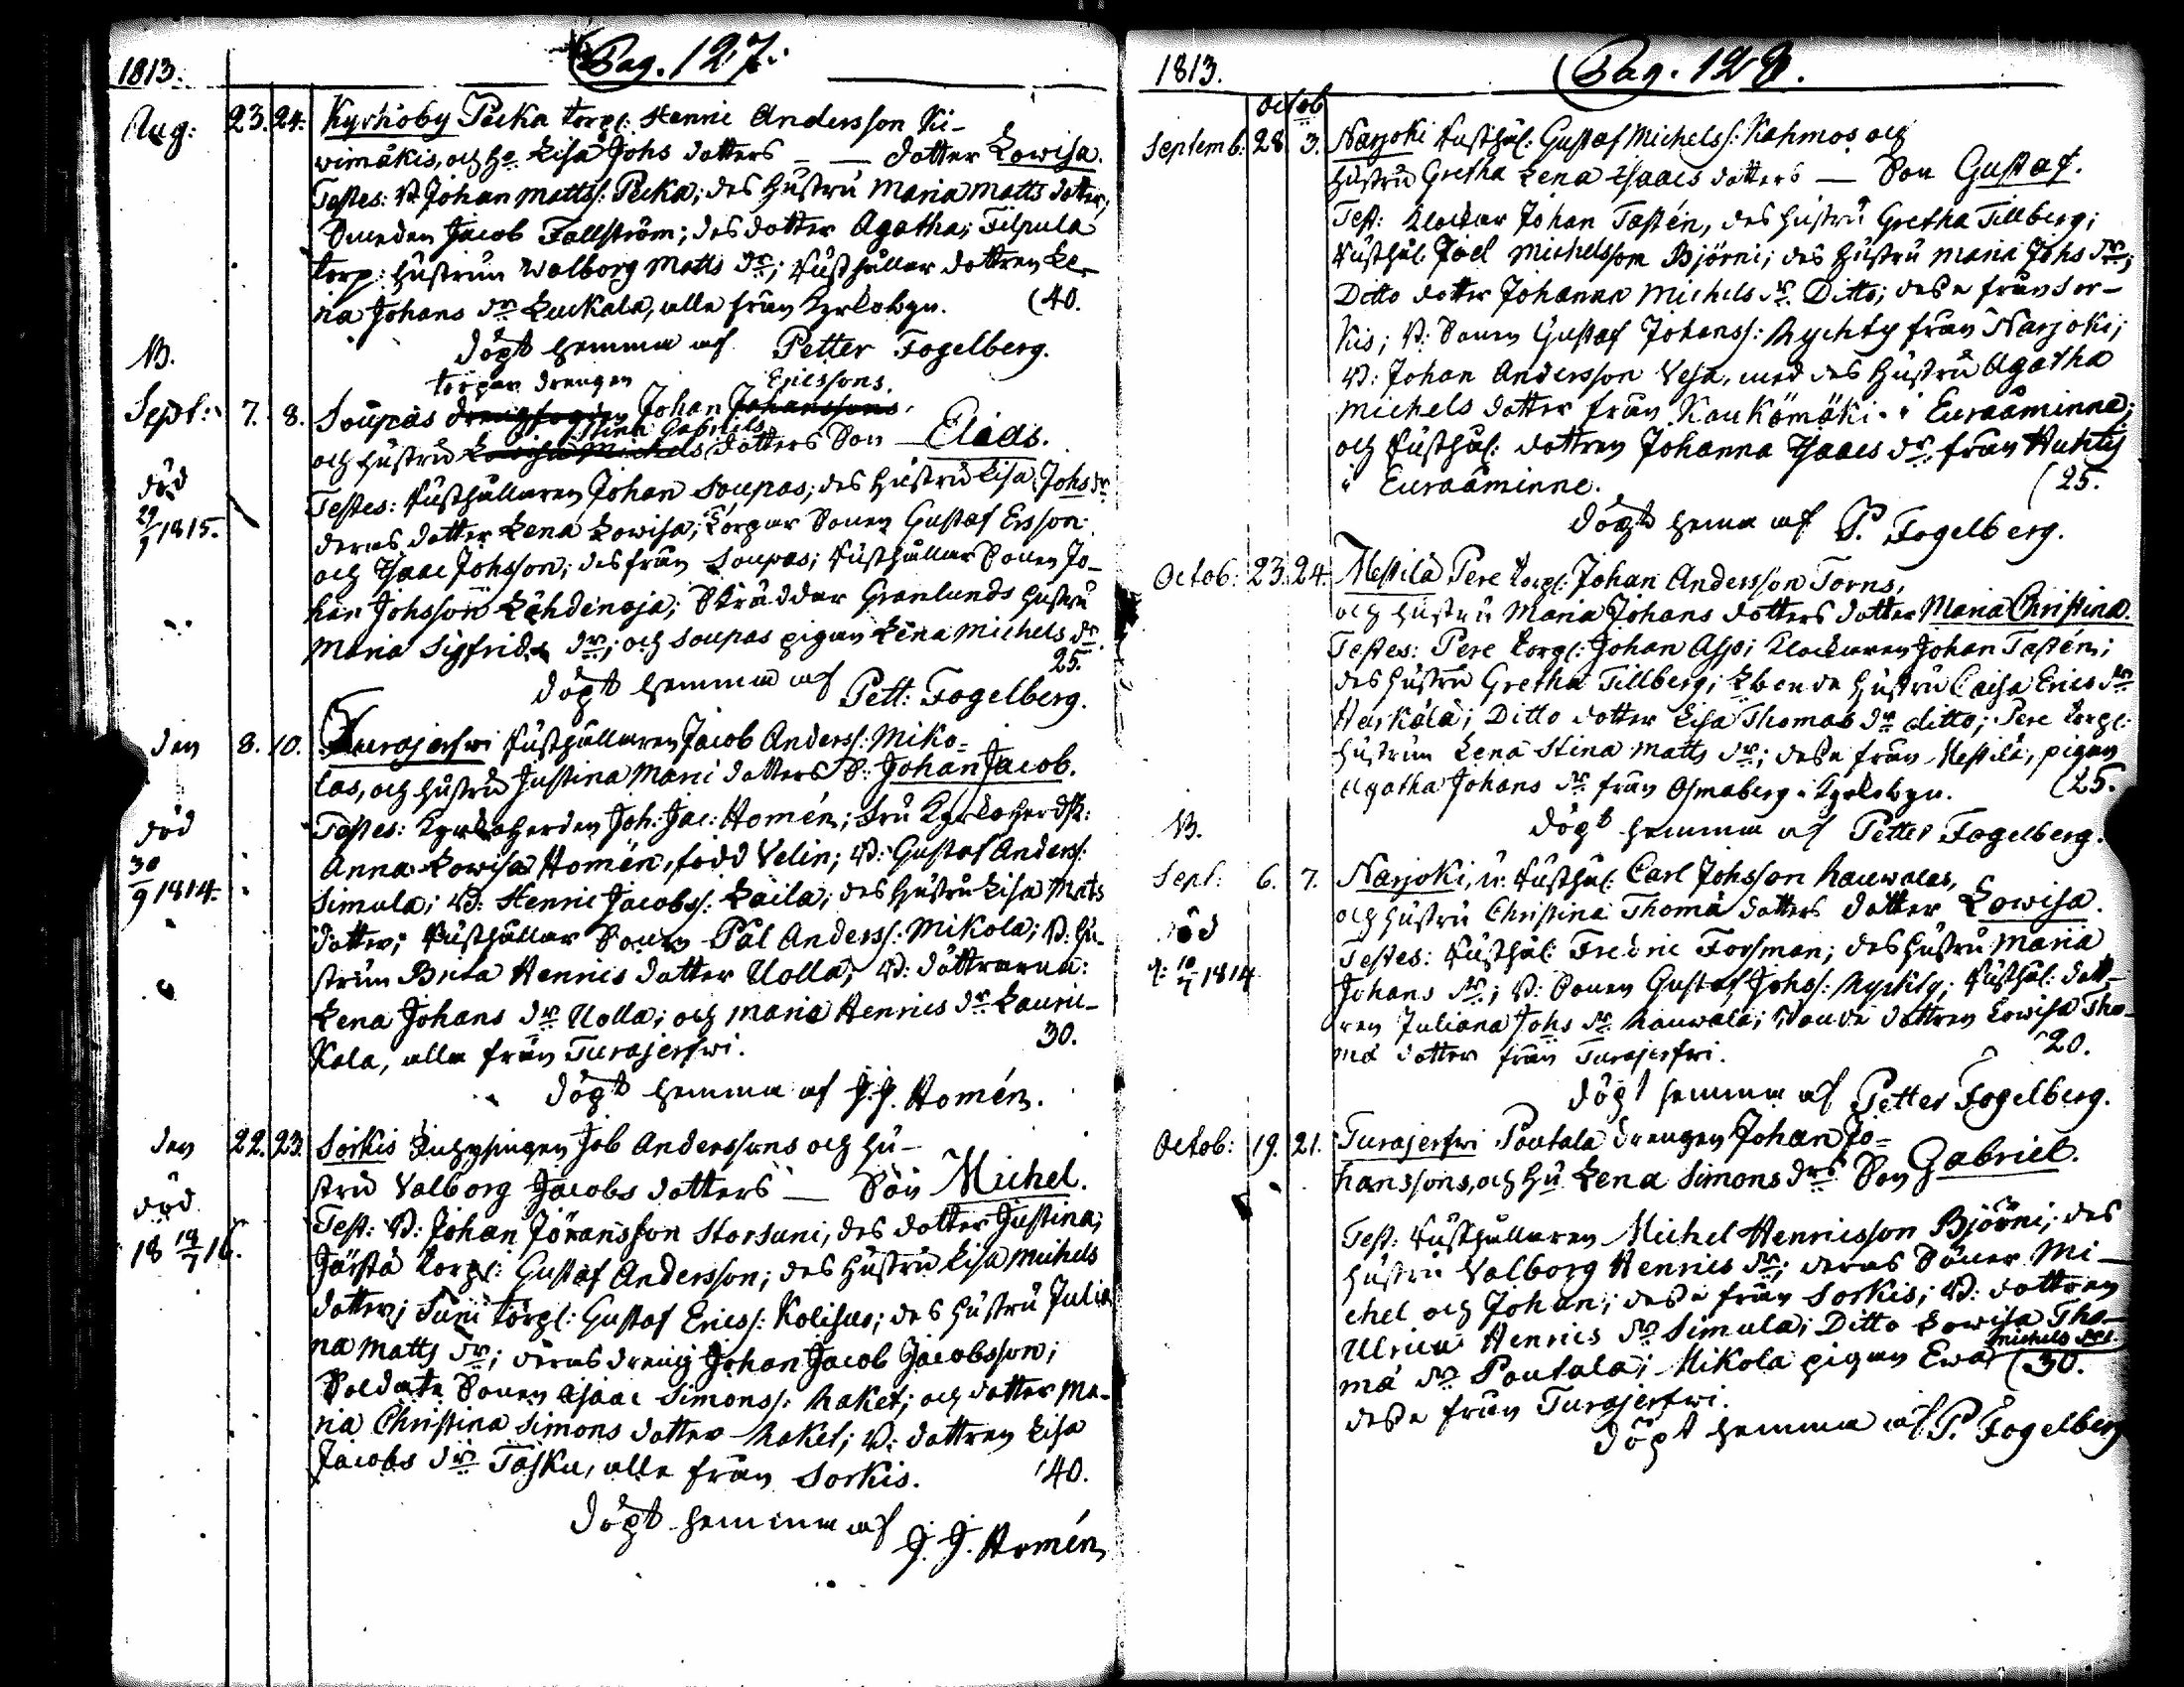 1813. Pag. 127.
Aug: 23. 24. Kyrkoby Pecka torp: Henric Andersson Ki-
vimäkis, och h:o Lisa Johs dotters _ _ dotter Lowisa.
Testes: B. Johan Matts: Pecka; des hustru Maria Matts dotter;
Smeden Jacob Fallström; des dotter Agatha; Filpula
torp: hustrun Walborg Matts dr; Rusthållar dottren Le-
na Johans dr Luckala, alla från Kyrkobyn. (40.
döpt hemma af Petter Fogelberg.
NB.
torpar drengen Ericssons.
Sept: 7. 8. Soupas Johan Johanssons.
Stina Gabriels
och hustru Lowisa Michels dotters Son Elias.
död
29/1 1815.
Testes: Rusthållaren Johan Soupas; des hustru Lisa Johs dr
deras dotter Lena Lowisa; torpar Sonen Gustaf Ersson
och Isaac Johsson; des från Soupas; Rusthållar Sonen Jo-
han Johsson Lähdenoja; Skräddar Granlunds hustru
Maria Sigfrids dr; och Soupas pigan Lena Michels dr.
25.
döpt hemma af Pett: Fogelberg.
den 8. 10. Turajerfwi Rusthållaren Jacob Anders: Miko-
las, och hustru Justina Mari dotters S: Johan Jacob.
död
30/9 1814.
Testes: Kyrkoherden Joh: Jac: Homén; Fru Kyrkoherdsk:
Anna Lowisa Homén, född Velin; B: Gustaf Anders:
Simula; B: Henric Jacobs: Laila; des hustru Lisa Mats
dotter; Rusthållar Sonen Pål Anders: Mikola; B: hu-
strun Brita Henrics dotter Uolla; B: döttrarna:
Lena Johans dr Uolla; och Maria Henrics dr Lauri-
kala, alla från Turajerfwi. 30.
döpt hemma af J. J. Homén.
den 22. 23. Sorkis Inhysingen Job Anderssons och hu-
stru Valborg Jacobs dotters _ Son Michel.
död
18 18/7 16.
Test: B: Johan Jöransson Storsuni, des dotter Justina;
Järstä torp: Gustaf Andersson; des hustru Lisa Michels
dotter; Suni torp: Gustaf Erics: Kolisus; des hustru Julia
na Matts dr; deras dreng Johan Jacob Jacobsson;
Soldate Sonen Isaac Simons: Raket; och dotter Ma-
ria Christina Simons dotter Raket; B: dottren Lisa
Jacobs dr Tasku, alla från Sorkis. 40.
döpt hemma af
J. J. Homén
1813. Pag. 128.
Octob
Septemb: 28 3. Narjoki Rusthål: Gustaf Michels: Kahmos och
hustru Gretha Lena Isaacs dotters _ Son Gustaf.
Test: Klockar Johan Tastén, des hustru Gretha Tillberg;
Rusthål: Joel Michelsson Björni; des hustru Maria Johs dr;
Ditto dotter Johanna Michels dr Ditto; dessa från Sor-
kis; B: Sonen Gustaf Johans: Rychty från Narjoki;
B: Johan Andersson Vesa, med des hustru Agatha
Michels dotter från Kaukömäki i Euraåminne;
och Rusthål: dottren Johanna Isaacs dr från Huhtis
i Euraåminne. (25.
döpt hema af P. Fogelberg.
Octob: 23. 24. Mestilä Pere torp: Johan Andersson Torns,
och hustru Maria Johans dotters dotter Maria Christina.
Testes: Pere torp: Johan Asp; Klockaren Johan Tastén;
des hustru Gretha Tillberg; hustru Caisa Erics dr
Harkälä; Ditto dotter Lisa Thomas dr ditto; Pere torp:
hustrun Lena Stina Matts dr; dessa från Mestilä, pigan
Agatha Johans dr från Osmaberg i Kyrkobyn. (25.
döpt hemma af Petter Fogelberg.
NB.
Sept: 6. 7. Narjoki, Rusthål: Carl Johsson Rauwolas,
och hustru Christina Thomä dotters dotter Lowisa.
död
d: 10/7 1814
Testes: Rusthål: Fredric Forsman; des hustru Maria
Johans dr; B: Sonen Gustaf Johs: Rychty; Rusthål: dott-
ren Juliana Johs dr Rauwala; Bonde dottren Lowisa Tho-
mä dotter från Turajerfwi. 20.
döpt hemma af Petter Fogelberg.
Octob: 19. 21. Turajerfwi Poutala drengen Johan Jo-
hanssons, och hu Lena Simons drs Son Gabriel.
Test: Rusthållaren Michel Henricsson Björni; des
hustru Valborg Henrics dr; deras Söner Mi-
chel och Johan; dessa från Sorkis; B: dottren
Ulrica Henrics dr Simula; Ditto Lowisa Tho-
mä dr Poutala; Mikola pigan Ewa Michels dr (30.
dessa från Turajerfwi.
döpt hemma af P. Fogelberg